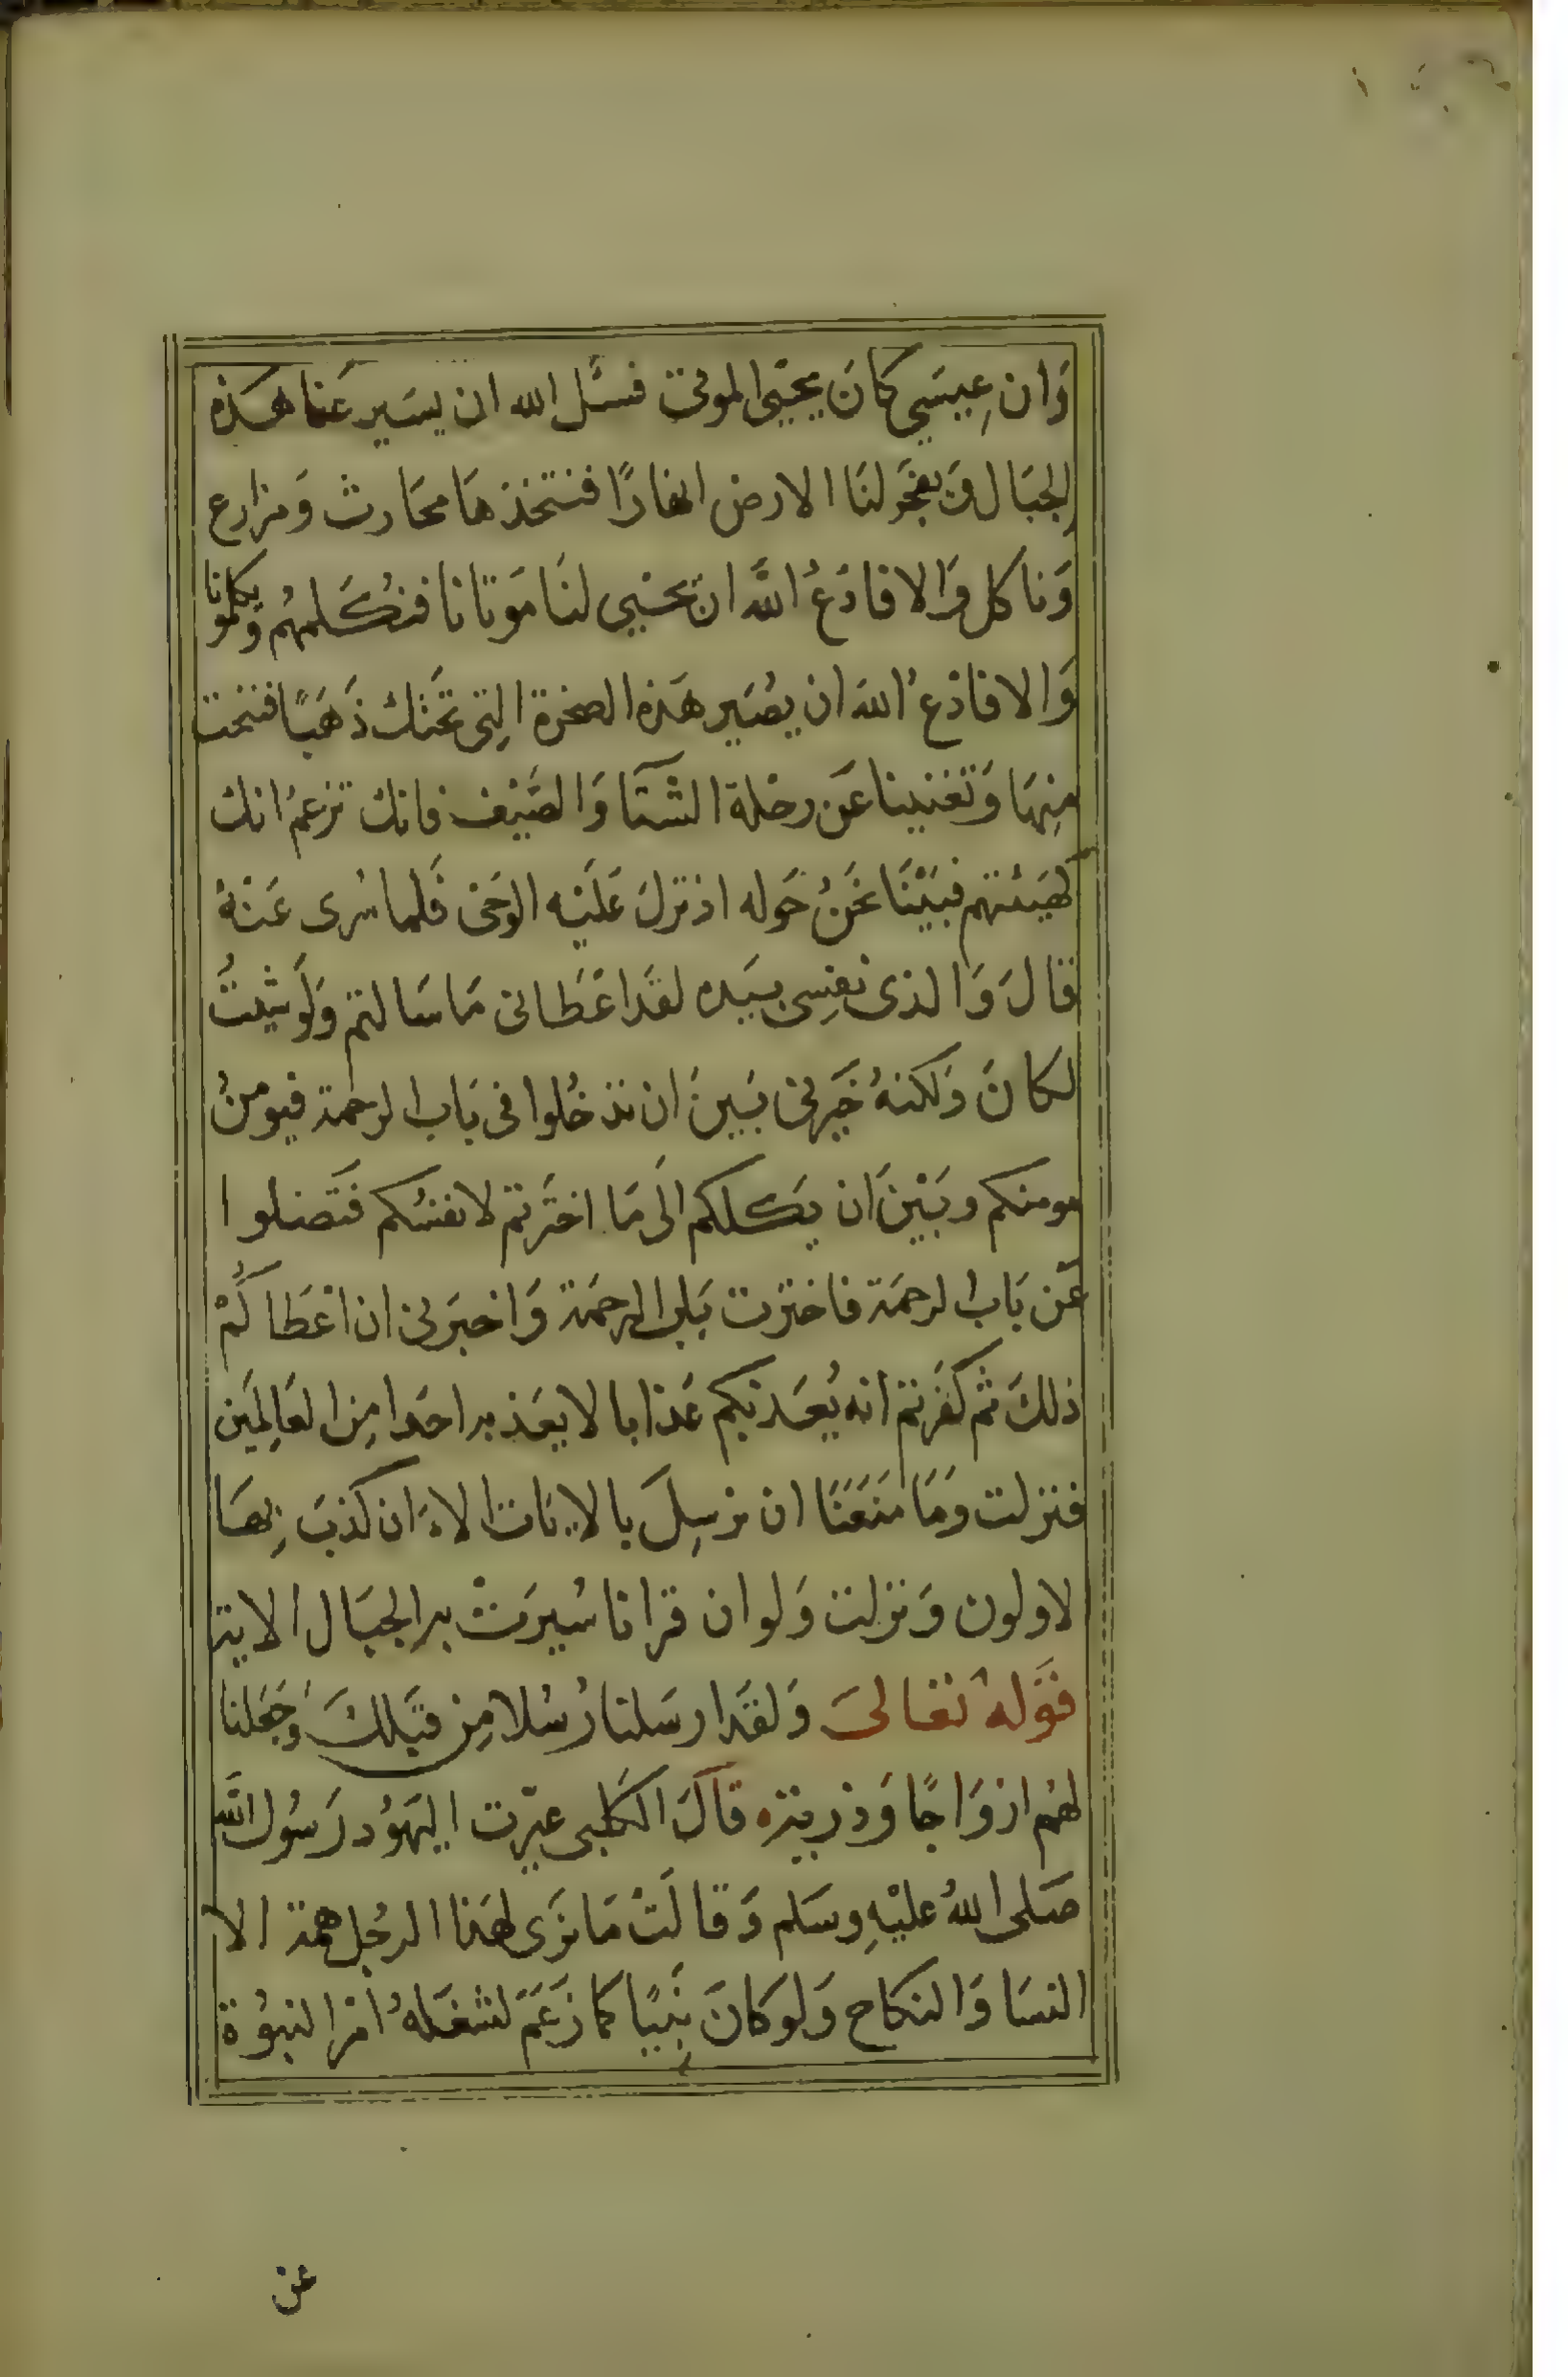 وَان عِيسَي كانَ يحيى الموتى فسئل الله ان يسَير عَنا هَذه
الجبَال وَيفجر لنَا الارض انهارًا فنتخذهَا محَارث وَمزارع
وَناكل وَالا فادعُ اللهَ ان يحيى لنَا مَوتانا فنُكَلمهُم وَيكلمونا
وَالا فادعُ اللهَ ان يصَير هَذه الصخرة التِى تحَتك ذَهَبًا فننحت
مِنهَا وَتغنينا عَن رحلة الشتَا وَالصَيْف فانك تزعمُ انك
كهيئتهم فبَيْنَا نحنُ حَوله اذ نزلَ عَليْه الوَحى فَلما سُرى عَنهُ
قالَ وَالذى نفسِى بيَده لقدَ اعْطَانى مَا سَالتم وَلَو شِئتُ
لكانَ وَلكنهُ خَيرنى بَينَ ان تدخلوا فى بَاب الرحمة فيومنُ
مومنكم وبَيْنَ ان يكلكم الَى مَا اختَرتم لانفسُكم فَتَضلوا
عَن بَاب الرحمَة فاخترت بَاب الرحمَة وَاخبرَنى ان اعْطَاكُمْ
ذلكَ ثم كفَرتم انه يُعَذبكم عَذابا لا يعَذبه احدا مِن العَالِمَين
فنزلت وَمَا مَنَعَنَا ان نرْسِلَ بالايَات الا ان كذبَ بِهَا
لاولون وَنزلت وَلو ان قرانا سُيرَتْ به الجبَال الاية
قَوَله تعَالىَ وَلقدَ ارسَلنا رُسُلا مِن قبَلكَ وَجَعَلنا
لهُم ازوَاجًا وَذريته قالَ الكلبى عيّرت اليَهُود رَسُول الله
صَلى اللهُ عليْهِ وسَلم وَقالَتْ مَا نرَى لهَذا الرجُل همة الا
النسَا وَالنكاح وَلو كانَ نَبِيًا كما زَعَمَ لشغَلهُ امْر النبوُة
عن